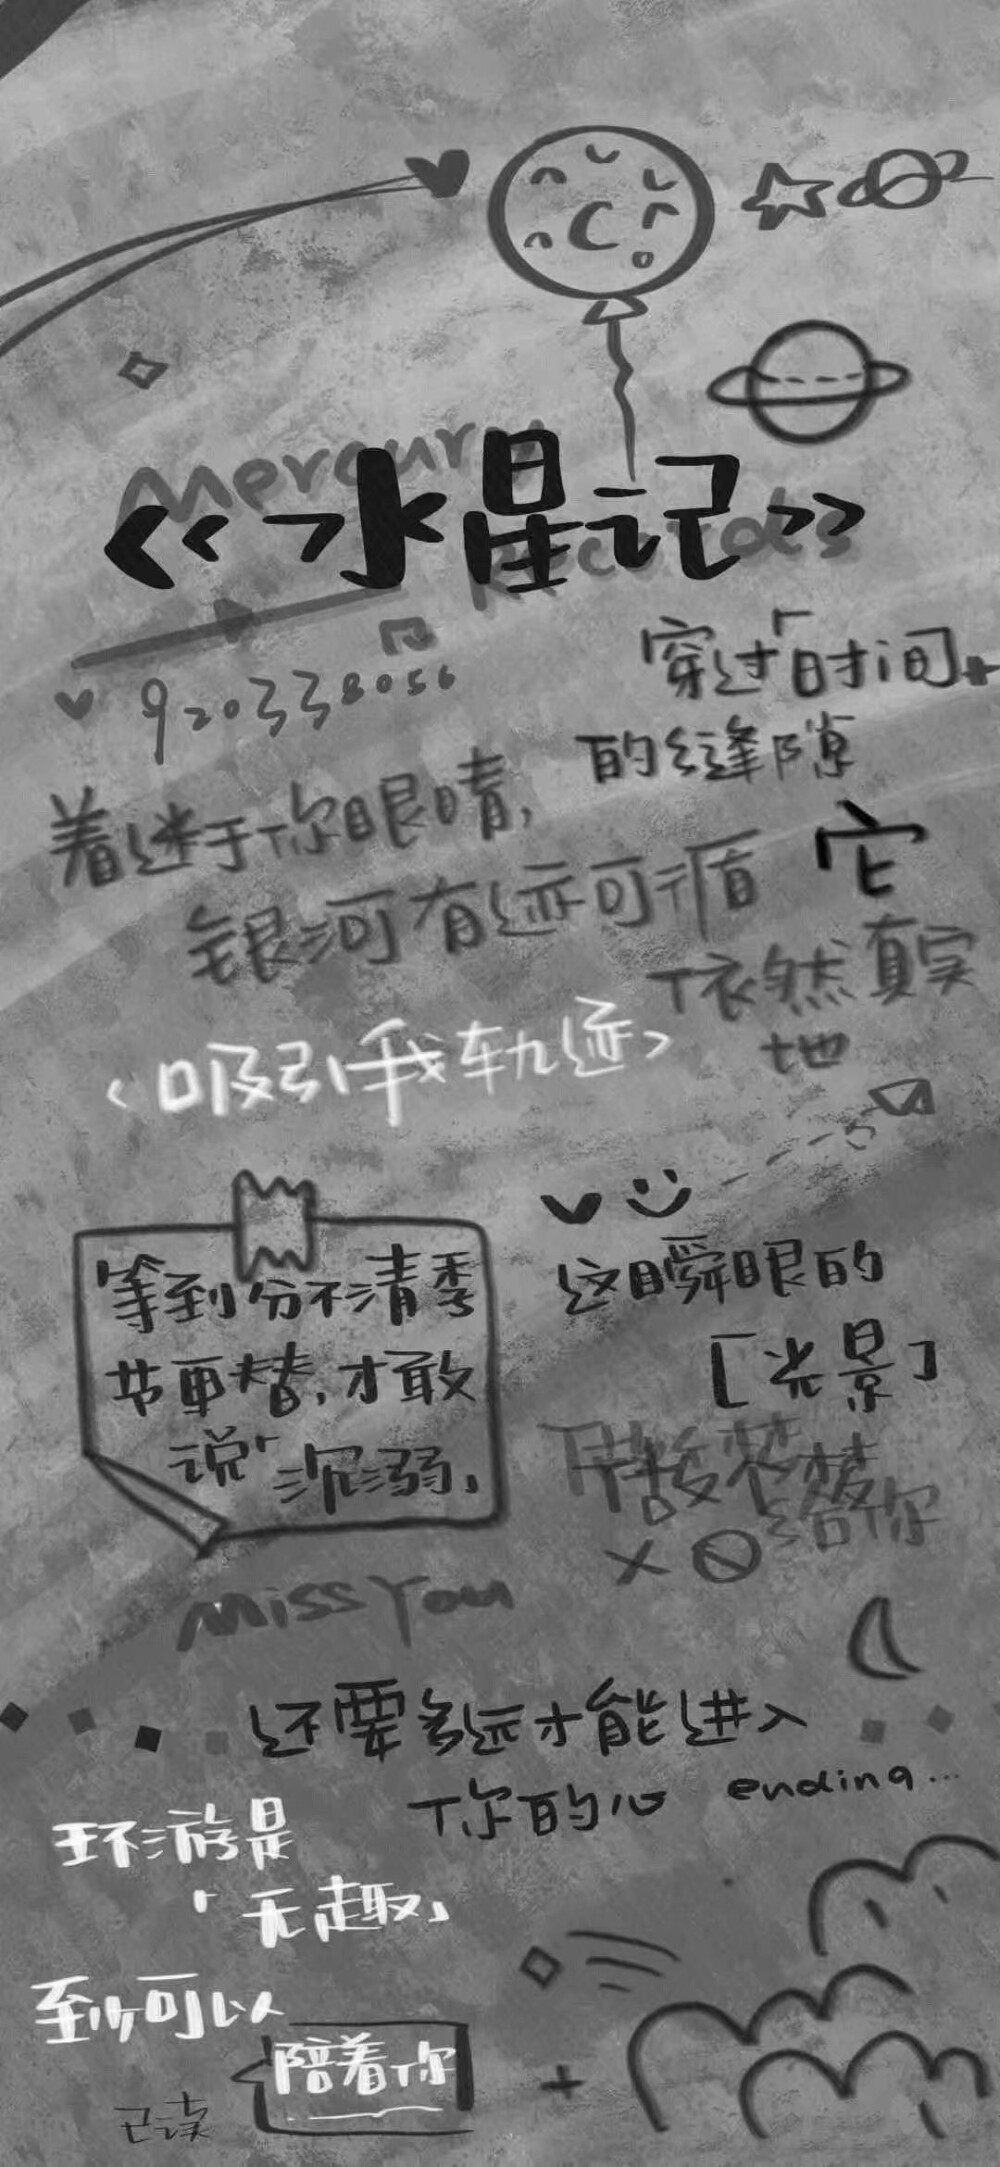 Mercury
《水星记》
Records
920338056
穿过「时间
的缝隙
着迷于你眼睛,
银河有迹可循
它
依然真实
地
<吸引我轨迹>
等到分不清季
节更替,才敢
说「沉溺」
这瞬眼的
[光景]
给你
Miss You
还要多远才能进入
你的心 ending...
环游是
「无趣」
至少可以
陪着你
已读